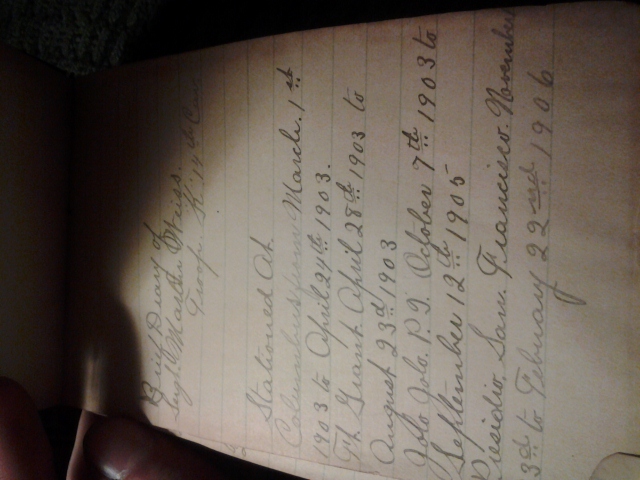 Brief Diary of
Sergt. Martin Weiss.
Troop. K. 14th Cav
Stationed At
Columbus from March. 1st
1903 to April 24th 1903.
Ft. Grant. April 28th 1903 to
August 23d 1903
Jolo Jolo. P.I. October 7th 1903 to
September 12th 1905
Presidio. San. Francisco. November
3d to February 22nd 1906